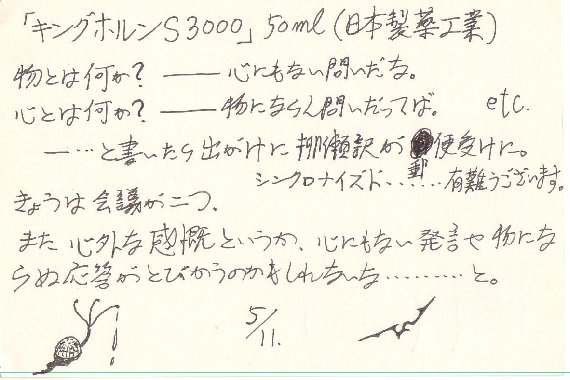 「キングホルンS3000」50ml(日本製薬工業)
物とは何か? ―― 心にもない問いだな。
心とは何か? ―― 物にならん問いだってば。 etc.
―…と書いたら出がけに 柳瀬訳が 郵便受けに。
シンクロナイズド……有難うございます。
きょうは会議が二つ、
また心外な感慨というか、心にもない発言や物にな
らぬ応答がとびかうのかもしれないな………と。
5/11.